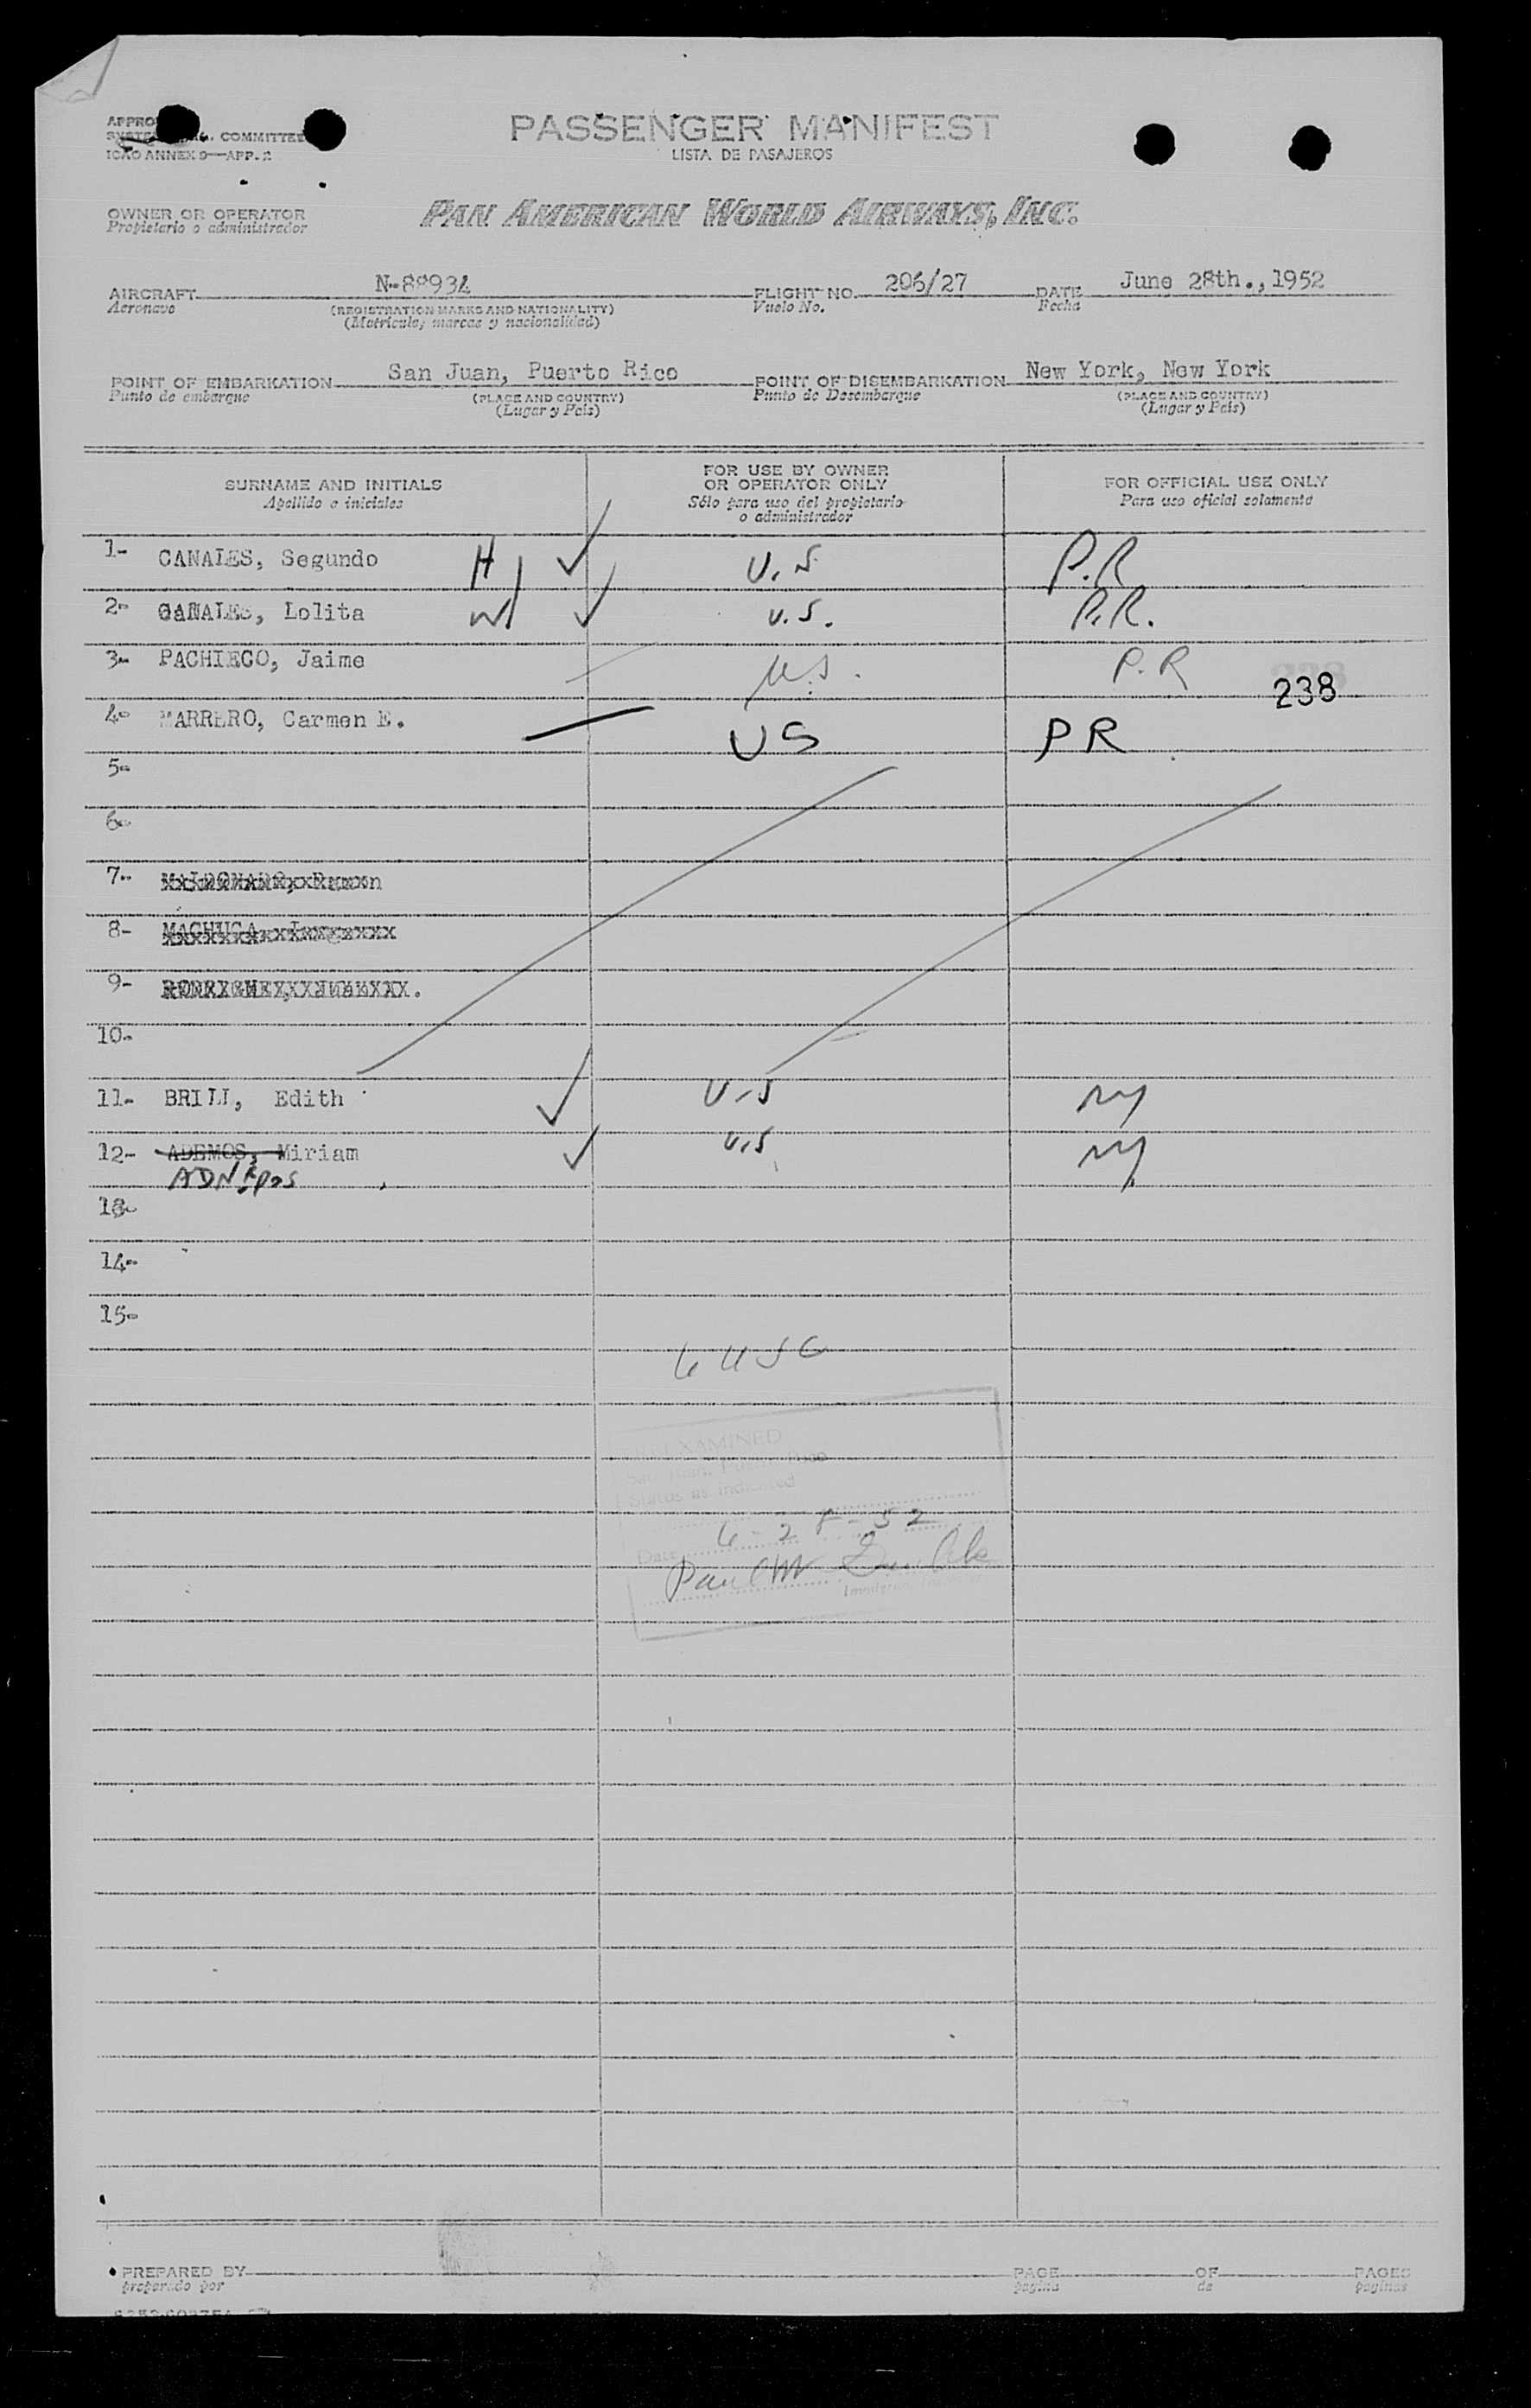 PASSENGER MANIFEST
COMMITTEE
ICAO ANNEX 9—APP. 2
LISTA DE PASAJEROS
OWNER OR OPERATOR
Propietario o administrador
PAN AMERICAN WORLD AIRWAYS, INC.
AIRCRAFT N-88934 FLIGHT NO. 206/27 DATE June 28th.,1952
Aeronave (REGISTRATION MARKS AND NATIONALITY) Vuelo No. Fecha
(Matrícula, marcas y nacionalidad)
POINT OF EMBARKATION San Juan, Puerto Rico POINT OF DISEMBARKATION New York, New York
Punto de embarque (PLACE AND COUNTRY) Punto de Desembarque (PLACE AND COUNTRY)
(Lugar y País) (Lugar y País)
SURNAME AND INITIALS
Apellido e iniciales
FOR USE BY OWNER
OR OPERATOR ONLY
Sólo para uso del propietario
o administrador
FOR OFFICIAL USE ONLY
Para uso oficial solamente
1- CANALES, Segundo H ✓ U.S P.R
2- CANALES, Lolita W ✓ U.S. P.R.
3- PACHIECO, Jaime U.S. P.R
238
4- MARRERO, Carmen E. US PR
5-
6-
7- MALDONADO, Ramon
8- MACHUCA,
9- RODRIGUEZ, Juan
10-
11- BRILL, Edith ✓ U.S NY
12- ADEMOS, Miriam ✓ U.S NY
13-
14-
15-
6 USC
EXAMINED
San Juan, Puerto Rico
Status as indicated
Date 6-28-52